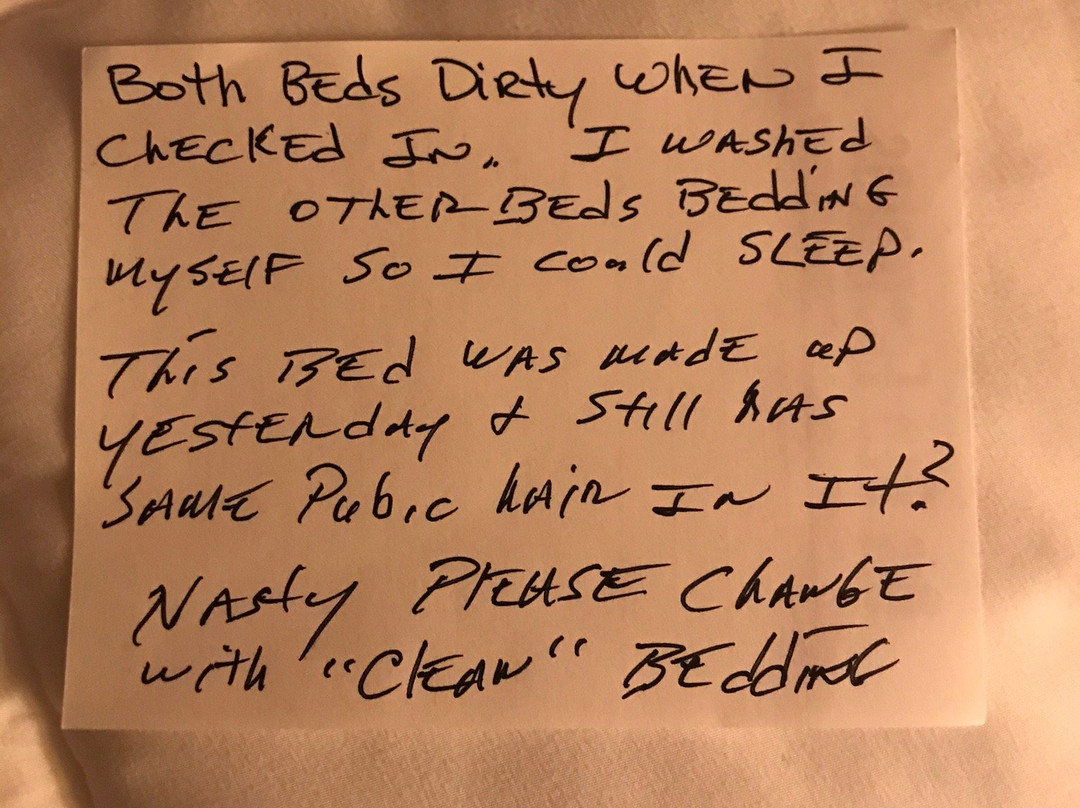 Both Beds Dirty when I
Checked In. I washed
The other Beds Bedding
myself so I could SLEEP.
This Bed was made up
yesterday & still has
same Pubic hair In It?
Nasty Please Change
with "Clean" Bedding